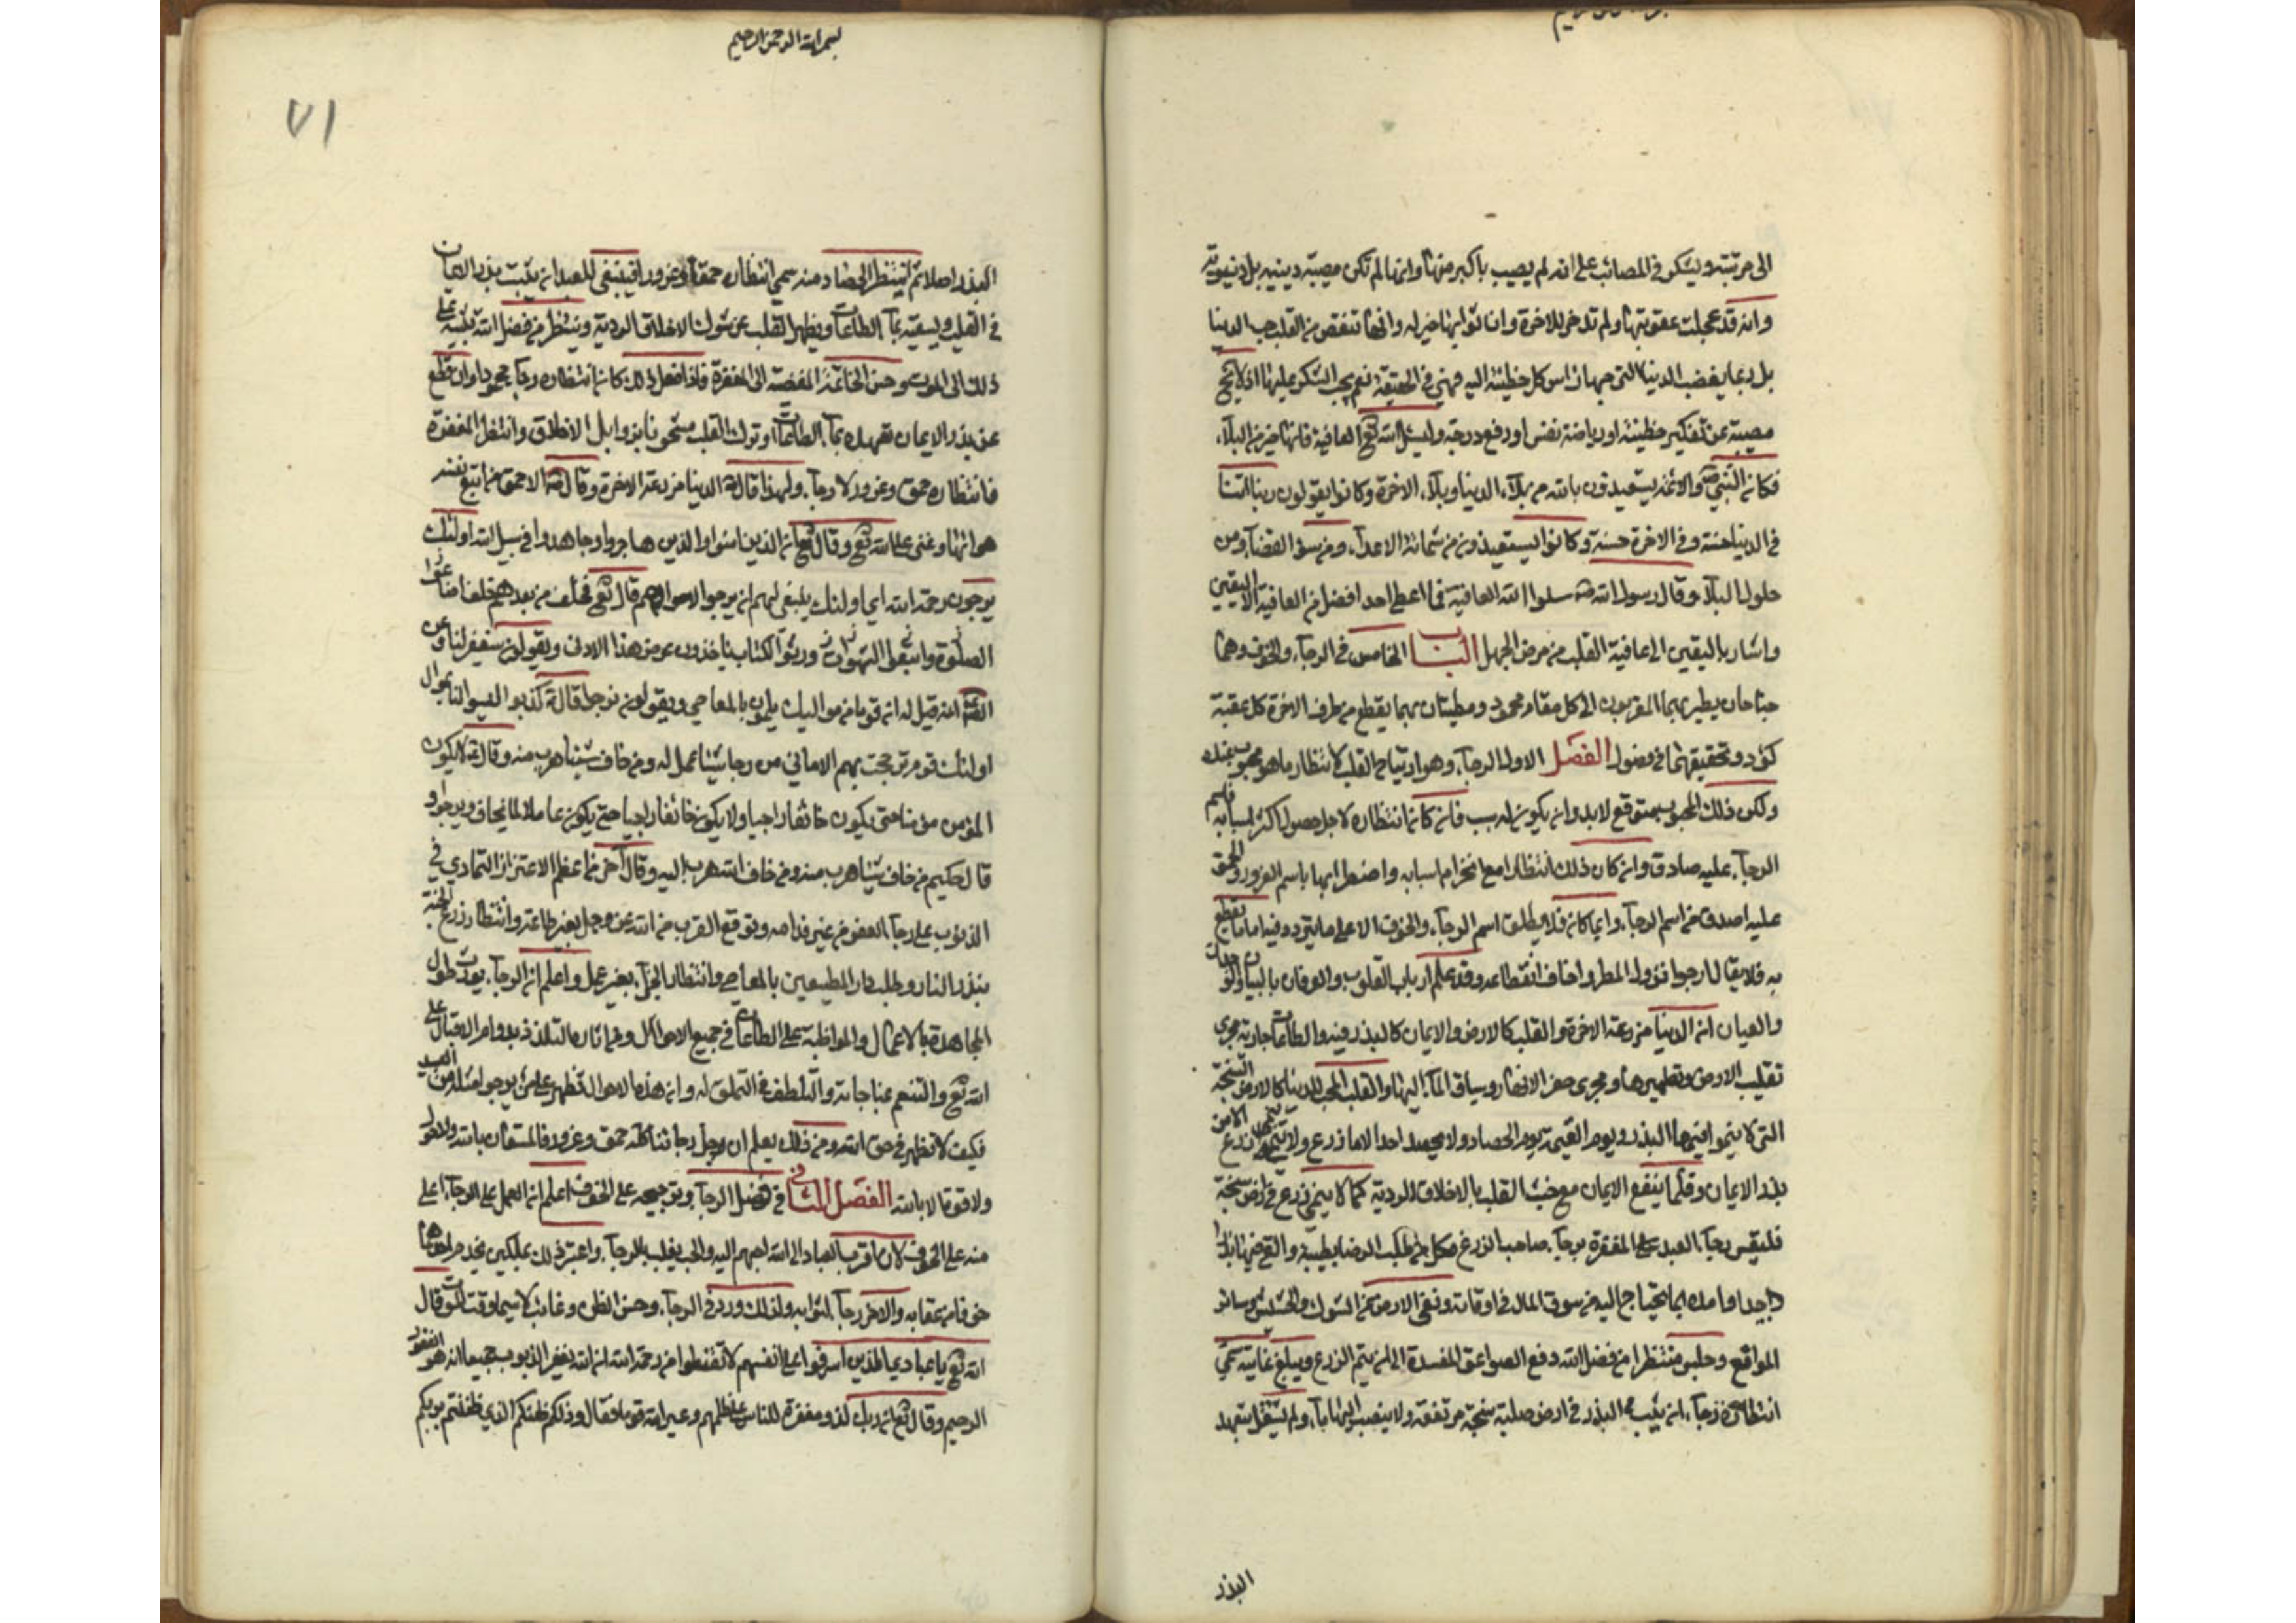 الى مرتبته ويشكر في المصائب على انه لم يصب باكبر منها وانها لم تكن مصيبة دينية بل دنيوية
وانه قد عجلت عقوبتها ولم تدخر للاخرة وان ثوابها خير له وانها تنقص من القلب حب الدنيا
بل ربما يغضب الدنيا التي حبها راس كل خطيئة اليه فهي في الحقيقة نعم يجب الشكر عليها اذ لا يخ
مصيبة عن تكفير خطيئة او رياضة نفس او رفع درجة وليسئل الله تع العافية فانها خير من البلاء
فكان النبي ص والائمة يستعيذون بالله من بلاء الدنيا وبلاء الاخرة وكانوا يقولون ربنا اتنا
في الدنيا حسنة وفي الاخرة حسنة وكانوا يستعيذون من شماتة الاعداء ومن سوء القضاء ومن
حلول البلاء وقال رسول الله ص سلوا الله العافية فما اعطى احد افضل من العافية الا اليقين
واشار باليقين الى عافية القلب من مرض الجهل الباب الخامس في الرجاء والخوف وهما
جناحان يطير بهما المقربون الى كل مقام محمود ومطيتان بهما يقطع من طرف الاخرة كل عقبة
كؤد وتحقيقهما في فصول الفصل الاول الرجاء وهو ارتياح القلب لانتظار ما هو محبوب عنده
ولكن ذلك المحبوب متوقع لابد وان يكون له سبب فان كان انتظاره لاجل حصول اكثر اسبابه فاسم
الرجاء عليه صادق وان كان ذلك انتظارا مع انخرام اسبابه واضطرابها باسم الغرور والحمق
عليه اصدق من اسم الرجاء وايما كان فلا يطلق اسم الرجاء والخوف الا على ما يتردد فيه اما ما يقطع
به فلا يقال ارجوا نزول المطر واخاف انقطاعه وقد علم ارباب القلوب والعرفان
والعيان ان الدنيا مزرعة الاخرة والقلب كالارض والايمان كالبذر فيه والطاعات جارية مجرى
تقليب الارض وتطهيرها ومجرى حفر الانهار وسياق الماء اليها والقلب المحب للدنيا كالارض السبخة
التي لا ينموا فيها البذر ويوم القيمة يوم الحصاد ولا يحصد احد الا ما زرع ولا ينمو زرع الا من
بذر الايمان وقلما ينفع الايمان مع خبث القلب بالاخلاق الردية كما لا ينمي زرع في ارض سبخة
فليقس رجاء العبد على المغفرة برجاء صاحب الزرع فكل من طلب ارضا طيبة والقى فيها بذرا
جيدا وامده بما يحتاج اليه من سوق الماء في اوقاته ونقى الارض من الشوك والحشيش وسائر
المواقع وجلس منتظرا من فضل الله دفع الصواعق المفسدة الى ان يتم الزرع ويبلغ غايته سمي
انتظاره رجاء، ان يثبت البذر في ارض صلبة سبخة مرتفعة ولا ينصب اليها ماء ولم يشتغل بتعهد
البذر
بسم الله الرحمن الرحيم
٧١
البذر اصلا ثم انتظر الحصاد منه سمي انتظاره حمقا وغرورا فينبغي للعبد ان يثبت بذر الايمان
في القلب ويسقيه بماء الطاعات ويطهر القلب عن شوك الاخلاق الردية وينتظر من فضل الله تثبيته على
ذلك الى الموت وحسن الخاتمة المفضية الى المغفرة فاذا فعل ذلك كان انتظاره رجاء محمودا وان قطع
عن بذر الايمان تعهده بماء الطاعات او ترك القلب مشحونا برذايل الاخلاق وانتظر المغفرة
فانتظاره حمق وغرور لا رجاء ولهذا قال ص الدنيا مزرعة الاخرة وقال ص الاحمق من اتبع نفسه
هواها وتمنى على الله تع وقال تع ان الذين امنوا والذين هاجروا وجاهدوا في سبيل الله اولئك
يرجون رحمة الله اي اولئك ينبغي لهم ان يرجوا قال تع فخلف من بعدهم خلف اضاعوا
الصلوة واتبعوا الشهوات ورثوا الكتاب ياخذون عرض هذا الادنى ويقولون سيغفر لنا وعن
انه قيل له ان قوما من مواليك يلمون بالمعاصي ويقولون نرجوا قال كذبوا ليسوا لنا بموال
اولئك قوم ترجحت بهم الاماني من رجا شيئا عمل له ومن خاف شيئا هرب منه وقال لا يكون
المؤمن مؤمنا حتى يكون خائفا راجيا ولا يكون خائفا راجيا حتى يكون عاملا لما يخاف ويرجوا و
قال حكيم من خاف شيئا هرب منه ومن خاف الله هرب اليه وقال اخر من اعظم الاغترار التمادي في
الذنوب على رجاء العفو من غير ندامة وتوقع القرب من الله عز وجل بغير طاعة وانتظار زرع الجنة
ببذر النار وطلب دار المطيعين بالمعاصي وانتظار الجزاء بغير عمل واعلم ان الرجاء يورث طول
المجاهدة بالاعمال والمواظبة على الطاعات في جميع الاحوال ومن اثاره التلذذ بدوام الاقبال على
الله تع والتنعم بمناجاته والتلطف في التملق له وان هذه الاحوال تظهر على من يرجو من العبيد
فكيف لا تظهر في حق الله ومن ذلك يعلم ان رجاءنا كله حمق وغرور فالمستعان بالله ولا حول
ولا قوة الا بالله الفصل الثاني في فضل الرجاء وترجيحه على الخوف اعلم ان العمل على الرجاء اعلى
منه على الخوف لان اقرب العباد الى الله احبهم اليه والحب يغلب بالرجاء واعتبر ذلك بملكين يخدم احدهما
خوفا من عقابه والاخر رجاء لثوابه ولذلك ورد في الرجاء وحسن الظن رغائب لا سيما وقت الموت قال
الله تع يا عبادي الذين اسرفوا على انفسهم لا تقنطوا من رحمة الله ان الله يغفر الذنوب جميعا انه هو الغفور
الرحيم وقال تع ان ربك لذو مغفرة للناس على ظلمهم وعير الله قوما فقال وذلكم ظنكم الذي ظننتم بربكم